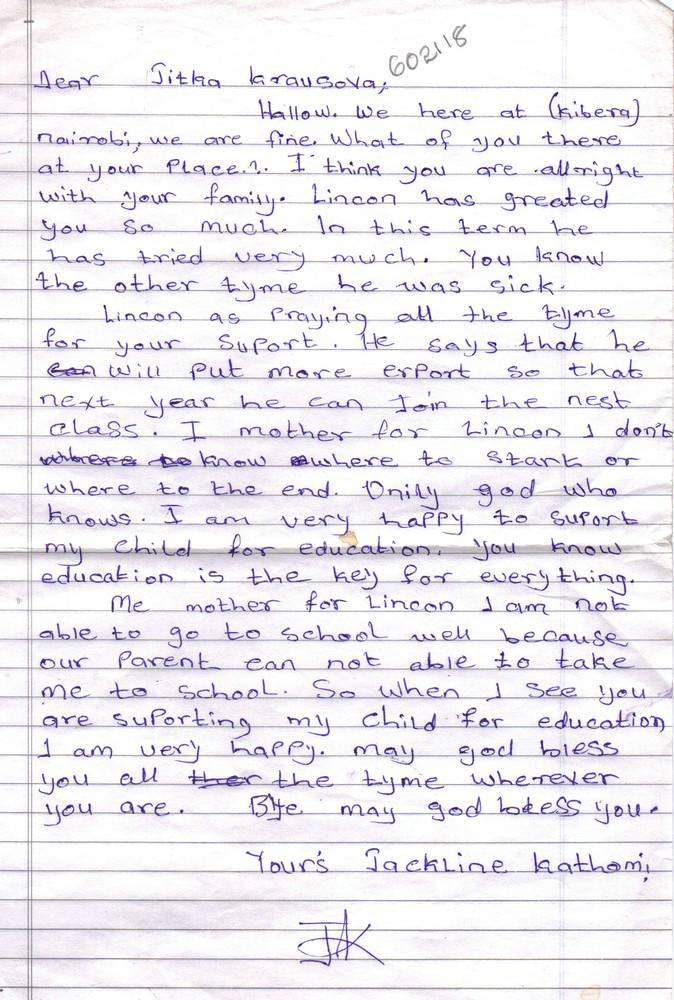 602118
Dear Jitka Krausova,
Hallow. We here at (Kibera)
nairobi, we are fine. What of you there
at your Place.?. I think you are allright
with your family. Lincon has greated
you so much. In this term he
has tried very much. You know
the other tyme he was sick.
Lincon as Praying all the tyme
for your Suport. He says that he
can will put more erport so that
next year he can Join the nest
class. I mother for Lincon I don't
where to know where to start or
where to the end. Onily god who
knows. I am very happy to suport
my child for education. You know
education is the key for everything.
Me mother for Lincon I am not
able to go to school well because
our Parent can not able to take
me to school. So when I see you
are suporting my child for education
I am very happy. may god bless
you all the tyme wherever
you are. Bye may god bless you.
Your's Jackline Kathomi
JAK